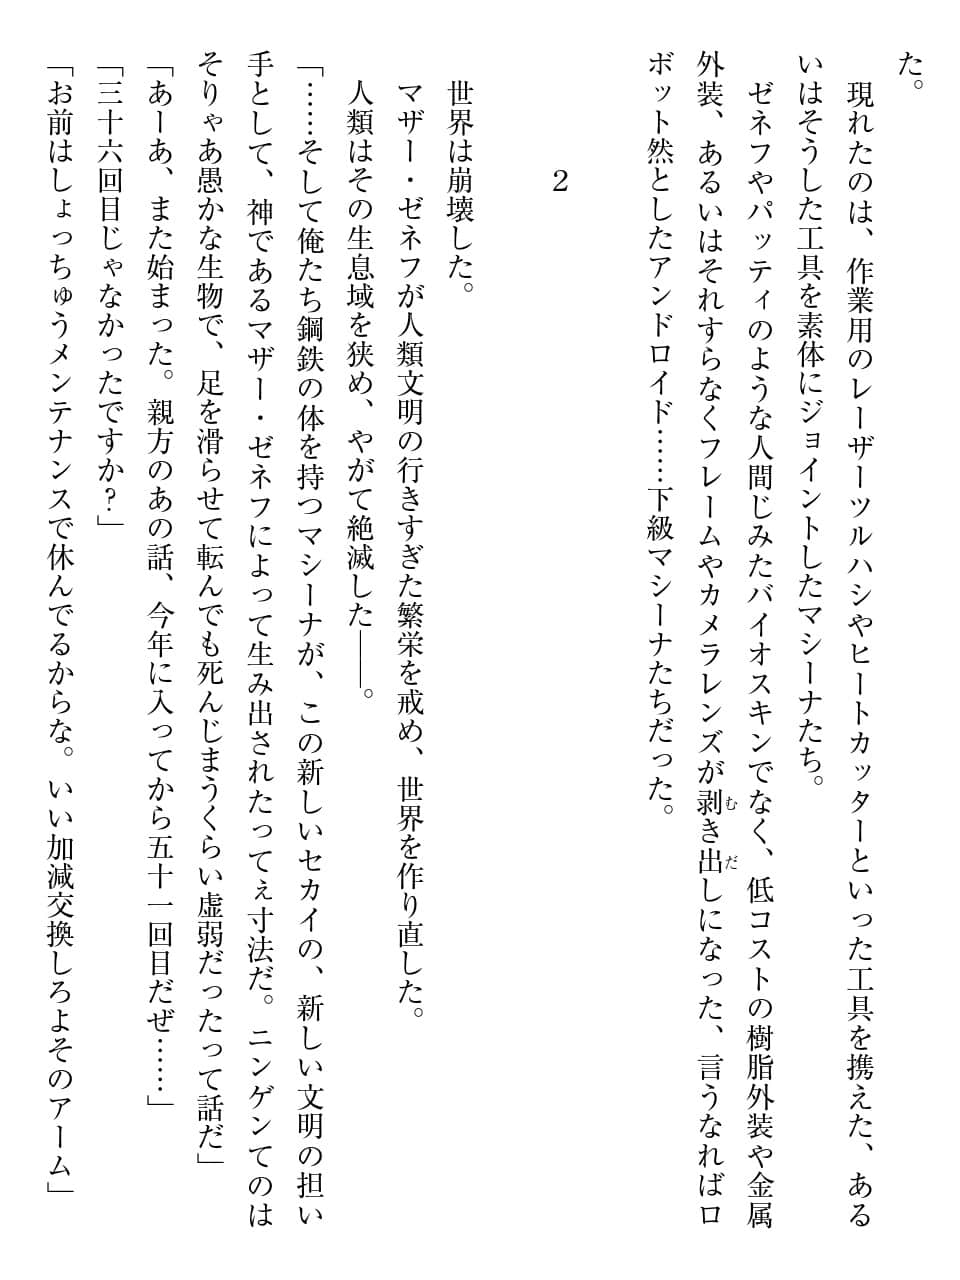 た。
　現れたのは、作業用のレーザーツルハシやヒートカッターといった工具を携えた、ある
いはそうした工具を素体にジョイントしたマシーナたち。
　ゼネフやパッティのような人間じみたバイオスキンでなく、低コストの樹脂外装や金属
外装、あるいはそれすらなくフレームやカメラレンズが剥き出しになった、言うなればロ
ボット然としたアンドロイド……下級マシーナたちだった。
2
　世界は崩壊した。
　マザー・ゼネフが人類文明の行きすぎた繁栄を戒め、世界を作り直した。
　人類はその生息域を狭め、やがて絶滅した――。
「……そして俺たち鋼鉄の体を持つマシーナが、この新しいセカイの、新しい文明の担い
手として、神であるマザー・ゼネフによって生み出されたってぇ寸法だ。ニンゲンてのは
そりゃあ愚かな生物で、足を滑らせて転んでも死んじまうくらい虚弱だったって話だ」
「あーあ、また始まった。親方のあの話、今年に入ってから五十一回目だぜ……」
「三十六回目じゃなかったですか？」
「お前はしょっちゅうメンテナンスで休んでるからな。いい加減交換しろよそのアーム」